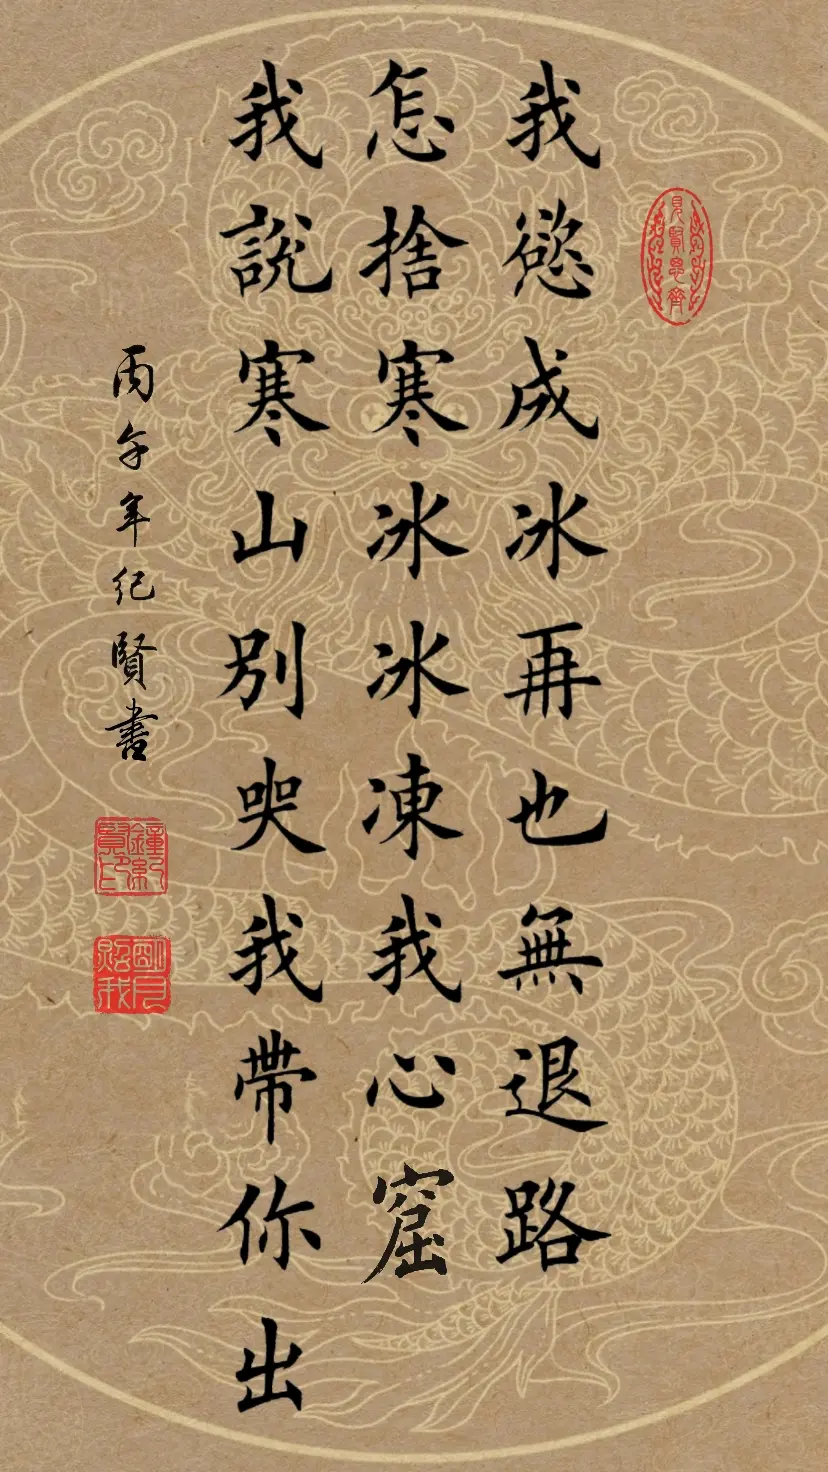 見賢思齊
我慾成冰再也無退路
怎捨寒冰冰凍我心窟
我說寒山別哭我帶你出
丙午年紀賢書